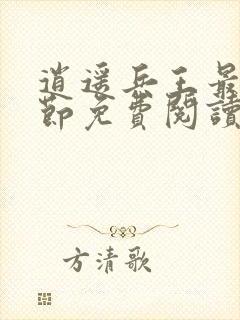 逍遥兵王最
節免費閱讀
方清歌